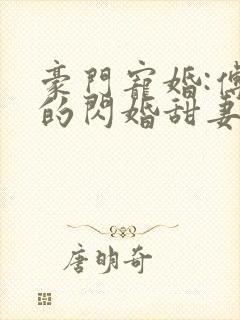 豪門寵婚:傅
的閃婚甜妻
唐明奇